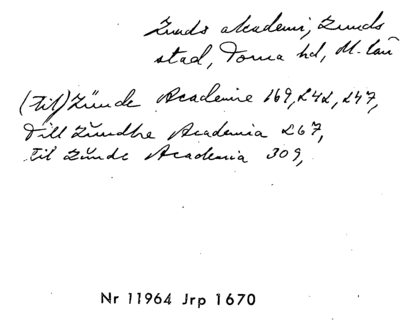 Lunds akademi, Lunds
stad, Torna hd, M. län
(til) Lünde Academie 169, 242, 247,
Till Lundhe Academia 267,
til Lŭnde Academia 309,
Nr 11964 Jrp 1670